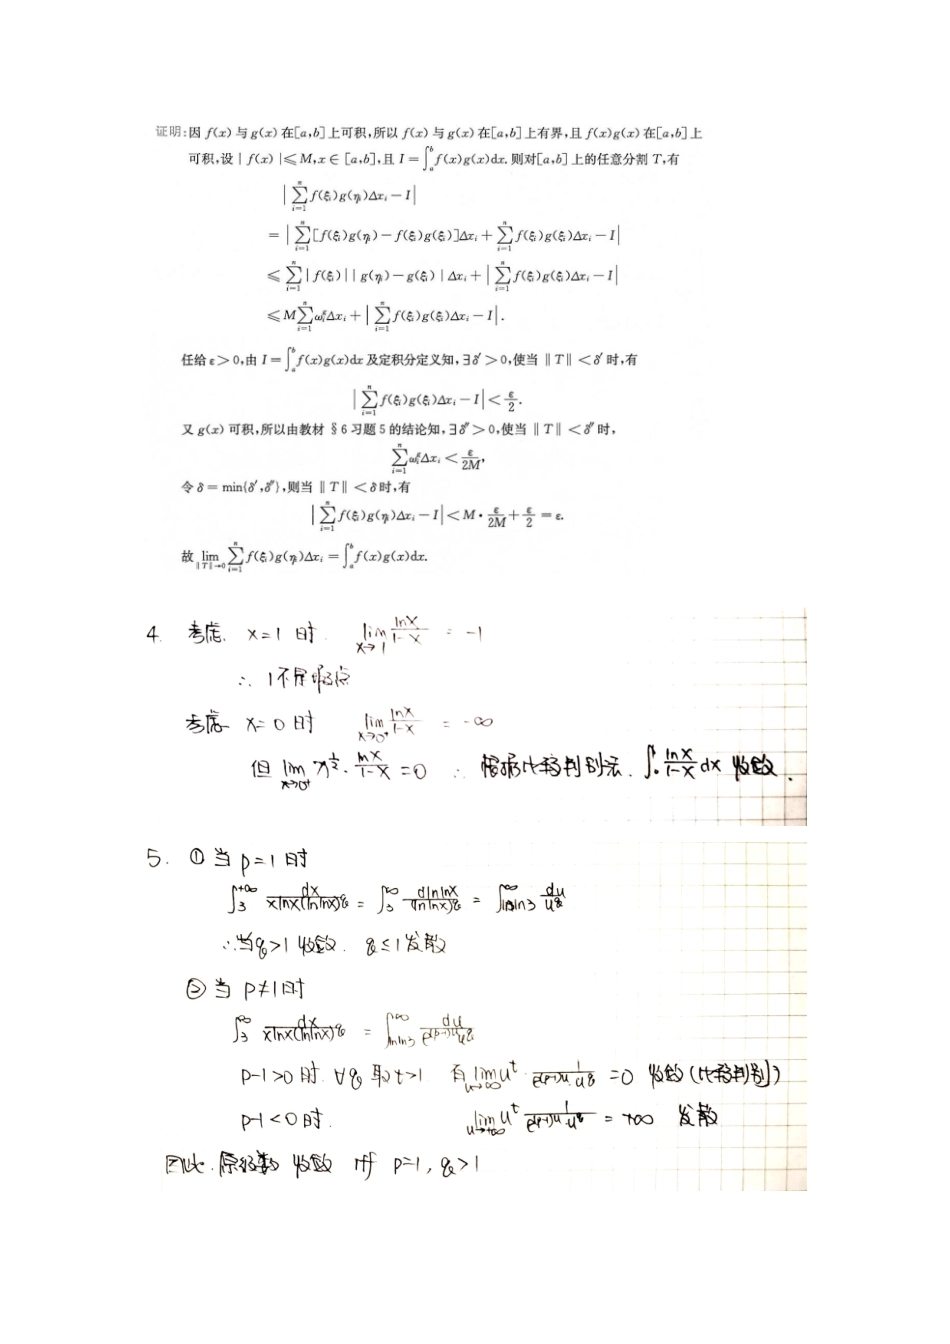 证明:因 f(x) 与 g(x) 在[a,b]上可积,所以 f(x) 与 g(x) 在[a,b]上有界,且 f(x)g(x) 在[a,b]上
可积,设 | f(x) |≤M,x∈[a,b],且 I=∫_a^b f(x)g(x)dx. 则对[a,b]上的任意分割 T,有
|∑_{i=1}^n f(ξᵢ)g(ηᵢ)Δxᵢ-I|
=|∑_{i=1}^n [f(ξᵢ)g(ηᵢ)-f(ξᵢ)g(ξᵢ)]Δxᵢ+∑_{i=1}^n f(ξᵢ)g(ξᵢ)Δxᵢ-I|
≤∑_{i=1}^n | f(ξᵢ) | | g(ηᵢ)-g(ξᵢ) | Δxᵢ+|∑_{i=1}^n f(ξᵢ)g(ξᵢ)Δxᵢ-I|
≤M∑_{i=1}^n ωᵢ^g Δxᵢ+|∑_{i=1}^n f(ξᵢ)g(ξᵢ)Δxᵢ-I|.
任给 ε>0,由 I=∫_a^b f(x)g(x)dx 及定积分定义知,∃δ′>0,使当 ‖T‖<δ′ 时,有
|∑_{i=1}^n f(ξᵢ)g(ξᵢ)Δxᵢ-I|<ε/2.
又 g(x) 可积,所以由教材 §6 习题 5 的结论知,∃δ″>0,使当 ‖T‖<δ″ 时,
∑_{i=1}^n ωᵢ^g Δxᵢ<ε/2M,
令 δ=min{δ′,δ″},则当 ‖T‖<δ 时,有
|∑_{i=1}^n f(ξᵢ)g(ηᵢ)Δxᵢ-I|<M·ε/2M+ε/2=ε.
故 lim_{‖T‖→0} ∑_{i=1}^n f(ξᵢ)g(ηᵢ)Δxᵢ=∫_a^b f(x)g(x)dx.
4. 考虑 x=1 时 lim_{x→1} lnx/(1-x) = -1
∴ 1不是瑕点
考虑 x=0 时 lim_{x→0⁺} lnx/(1-x) = -∞
但 lim_{x→0⁺} x^{1/2}·lnx/(1-x) =0 ∴ 根据比较判别法, ∫_0^1 lnx/(1-x) dx 收敛.
5. ① 当 p=1 时
∫_3^{+∞} dx/(xlnx(lnlnx)^q) = ∫_3^∞ dlnlnx/(lnlnx)^q = ∫_{lnln3}^∞ du/u^q
∴当q>1 收敛. q≤1发散
② 当 p≠1时
∫_3^∞ dx/(xlnx(lnlnx)^q) = ∫_{lnln3}^∞ du/(e^{(p-1)u}u^q)
p-1>0时. ∀q 取t>1 有 lim_{u→∞} u^t 1/(e^{(p-1)u}·u^q) =0 收敛 (比较判别)
p-1<0时. lim_{u→+∞} u^t 1/(e^{(p-1)u}·u^q) = +∞ 发散
因此.原级数 收敛 iff p=1, q>1